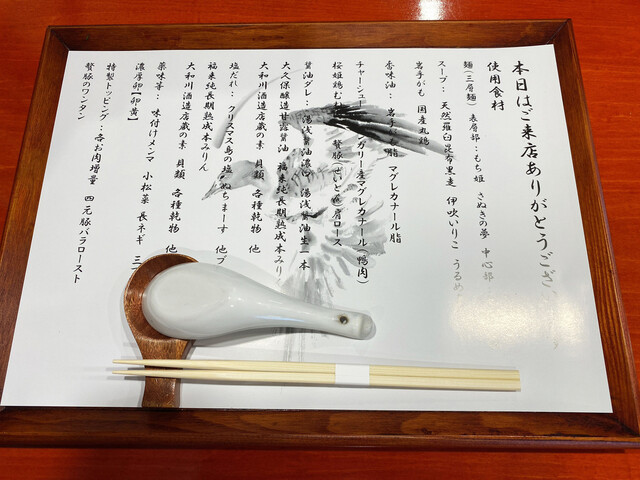 本日はご来店ありがとうござ
使用食材
麺(三層麺) 表層部:もち姫 さぬきの夢 中心部
スープ: 天然羅臼昆布黒走 伊吹いりこ うるめ
岩手がも 国産丸鶏
香味油: 岩手 脂 マグレカナール脂
チャーシュー ガリー産マグレカナール(鴨肉)
桜姫鶏む 贅豚(ぜいとん)肩ロース
醤油ダレ: 湯浅醤油濃口 湯浅醤油生一本
大久保醸造甘露醤油 福来純長期熟成本みりん
大和川酒造店蔵の素 貝類 各種乾物 他
塩だれ: クリスマス島の塩 ぬちまーす 他
福来純長期熟成本みりん
大和川酒造店蔵の素 貝類 各種乾物 他
薬味等: 味付けメンマ 小松菜 長ネギ 三
濃厚卵【卵黄】
特製トッピング:各お肉増量 四元豚バラロースト
贅豚のワンタン